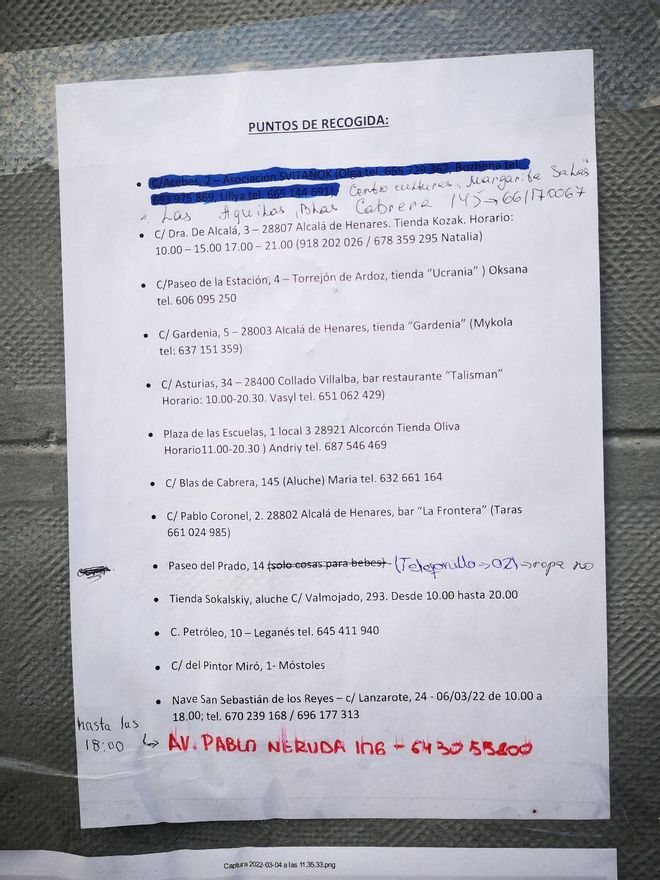 PUNTOS DE RECOGIDA:
C/Acebes, 2 – Asociación SVITANOK (Olga tel. 665 729 367, Bozhena tel.
693 975 869, Liliya tel. 665 144 691) Centro culturas, Margarita Salas"
Las Aguilas, Blas Cabrera 145 → 661170067
C/ Dra. De Alcalá, 3 – 28807 Alcalá de Henares. Tienda Kozak. Horario:
10.00 – 15.00 17.00 – 21.00 (918 202 026 / 678 359 295 Natalia)
C/Paseo de la Estación, 4 – Torrejón de Ardoz, tienda "Ucrania" ) Oksana
tel. 606 095 250
C/ Gardenia, 5 – 28003 Alcalá de Henares, tienda "Gardenia" (Mykola
tel: 637 151 359)
C/ Asturias, 34 – 28400 Collado Villalba, bar restaurante "Talisman"
Horario: 10.00-20.30. Vasyl tel. 651 062 429)
Plaza de las Escuelas, 1 local 3 28921 Alcorcón Tienda Oliva
Horario11.00-20.30 ) Andriy tel. 687 546 469
C/ Blas de Cabrera, 145 (Aluche) Maria tel. 632 661 164
C/ Pablo Coronel, 2. 28802 Alcalá de Henares, bar "La Frontera" (Taras
661 024 985)
Paseo del Prado, 14 (solo cosas para bebes) (Telefonillo → 02) → ropa no
Tienda Sokalskiy, aluche C/ Valmojado, 293. Desde 10.00 hasta 20.00
C. Petróleo, 10 – Leganés tel. 645 411 940
C/ del Pintor Miró, 1- Móstoles
Nave San Sebastián de los Reyes – c/ Lanzarote, 24 - 06/03/22 de 10.00 a
18.00; tel. 670 239 168 / 696 177 313
hasta las
18:00 ↳ AV. PABLO NERUDA 106 – 643055800
Captura 2022-03-04 a las 11.35.33.png